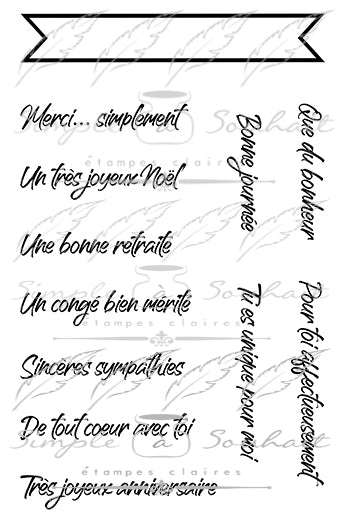 Merci... simplement
Un très joyeux Noël
Une bonne retraite
Un congé bien mérité
Sincères sympathies
De tout coeur avec toi
Très joyeux anniversaire
Bonne journée
Que du bonheur
Tu es unique pour moi
Pour toi affectueusement
Simple à Souhait
étampes claires
Simple à Souhait
étampes claires
Simple à Souhait
étampes claires